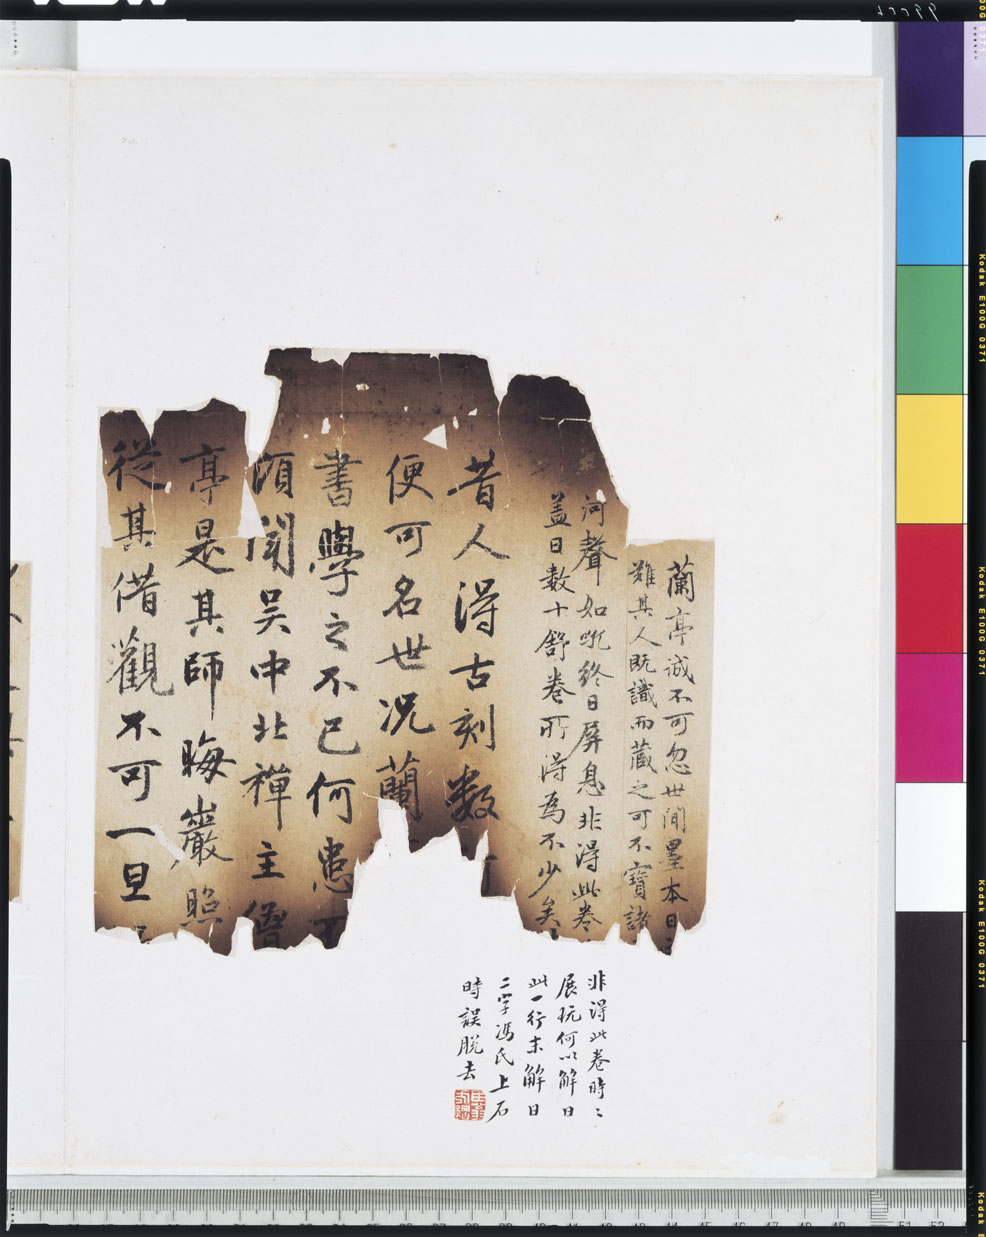 蘭亭誠不可忽世間墨本日
難其人既識而藏之可不寶諸
河聲如吼終日屏息非得此卷
蓋日數十舒卷所得為不少矣
昔人得古刻數
便可名世况蘭
書學之不已何患不
頃聞吴中北禪主僧
亭是其師晦巖照
從其借觀不可一旦
非得此卷時〻
展玩何以解日
此一行末解日
二字馮氏上石
時誤脱去
Kodak E100G 0371
Kodak E100G 0371
Kodak E100G 0371